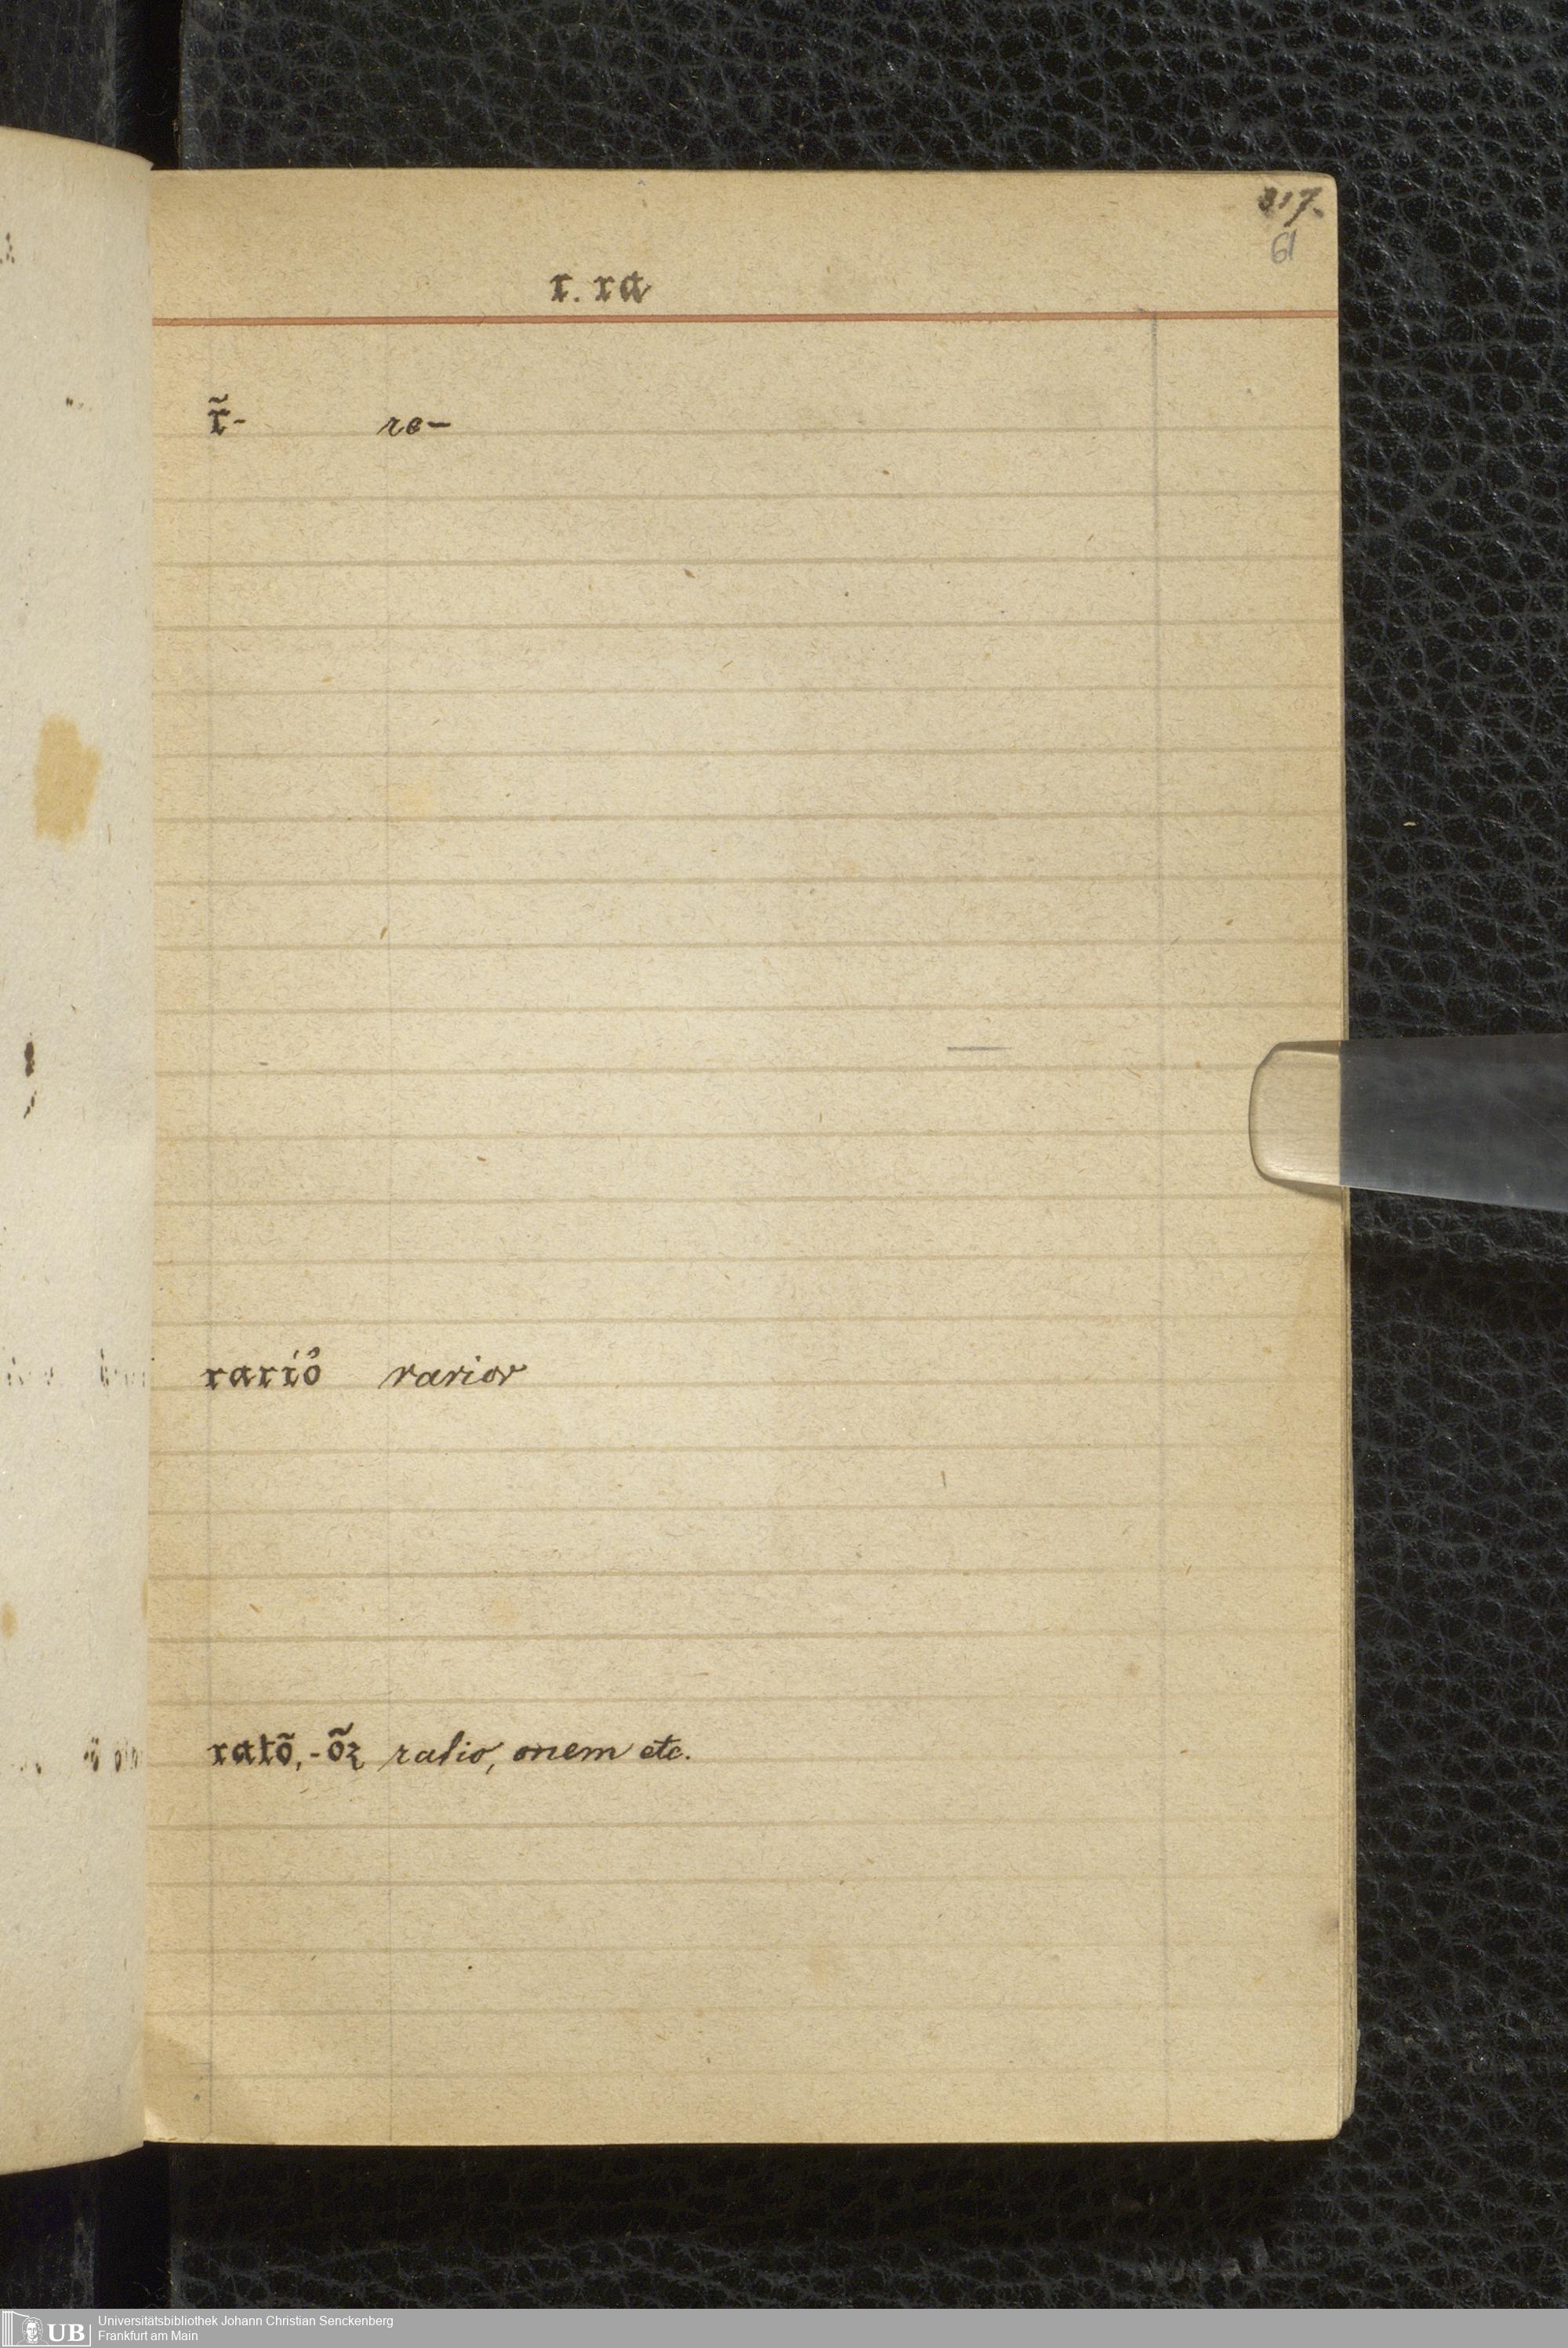 317.
61
r. ra
r̃- re-
rariỏ rarior
ratõ, -õꝫ ratio, onem etc.
UB Universitätsbibliothek Johann Christian Senckenberg
Frankfurt am Main